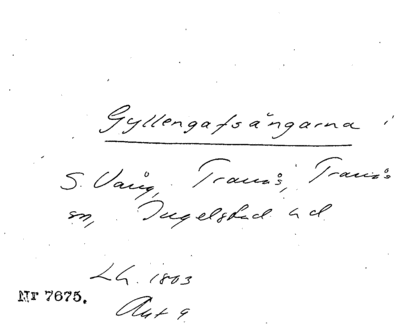 Gyllengafsängarna i
S. Vång, Tranås, Tranås
sn, Ingelstad hd
Lh. 1803
Akt 9
Nr 7675.